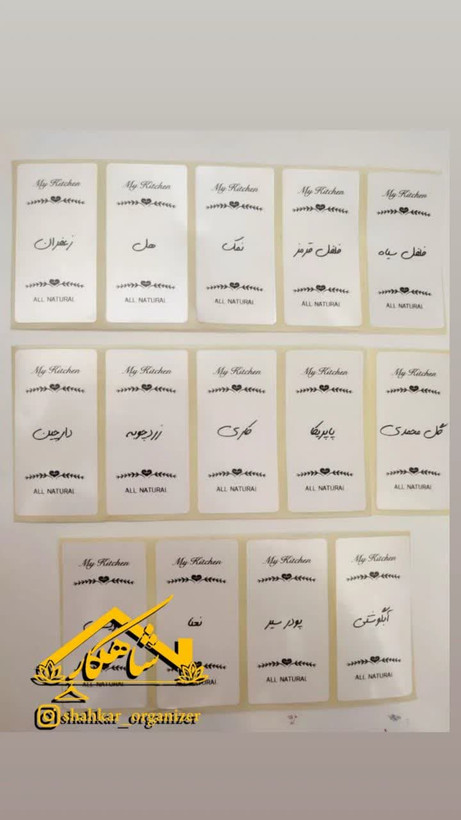 My Kitchen
زعفران
ALL NATURAL
My Kitchen
هل
ALL NATURAL
My Kitchen
نمک
ALL NATURAL
My Kitchen
فلفل قرمز
ALL NATURAL
My Kitchen
فلفل سیاه
ALL NATURAL
My Kitchen
دارچین
ALL NATURAL
My Kitchen
زردچوبه
ALL NATURAL
My Kitchen
کاری
ALL NATURAL
My Kitchen
پاپریکا
ALL NATURAL
My Kitchen
گل محمدی
ALL NATURAL
My Kitchen
My Kitchen
نعنا
My Kitchen
پودر سیر
ALL NATURAL
My Kitchen
آبگوشتی
ALL NATURAL
شاهکار
shahkar_organizer